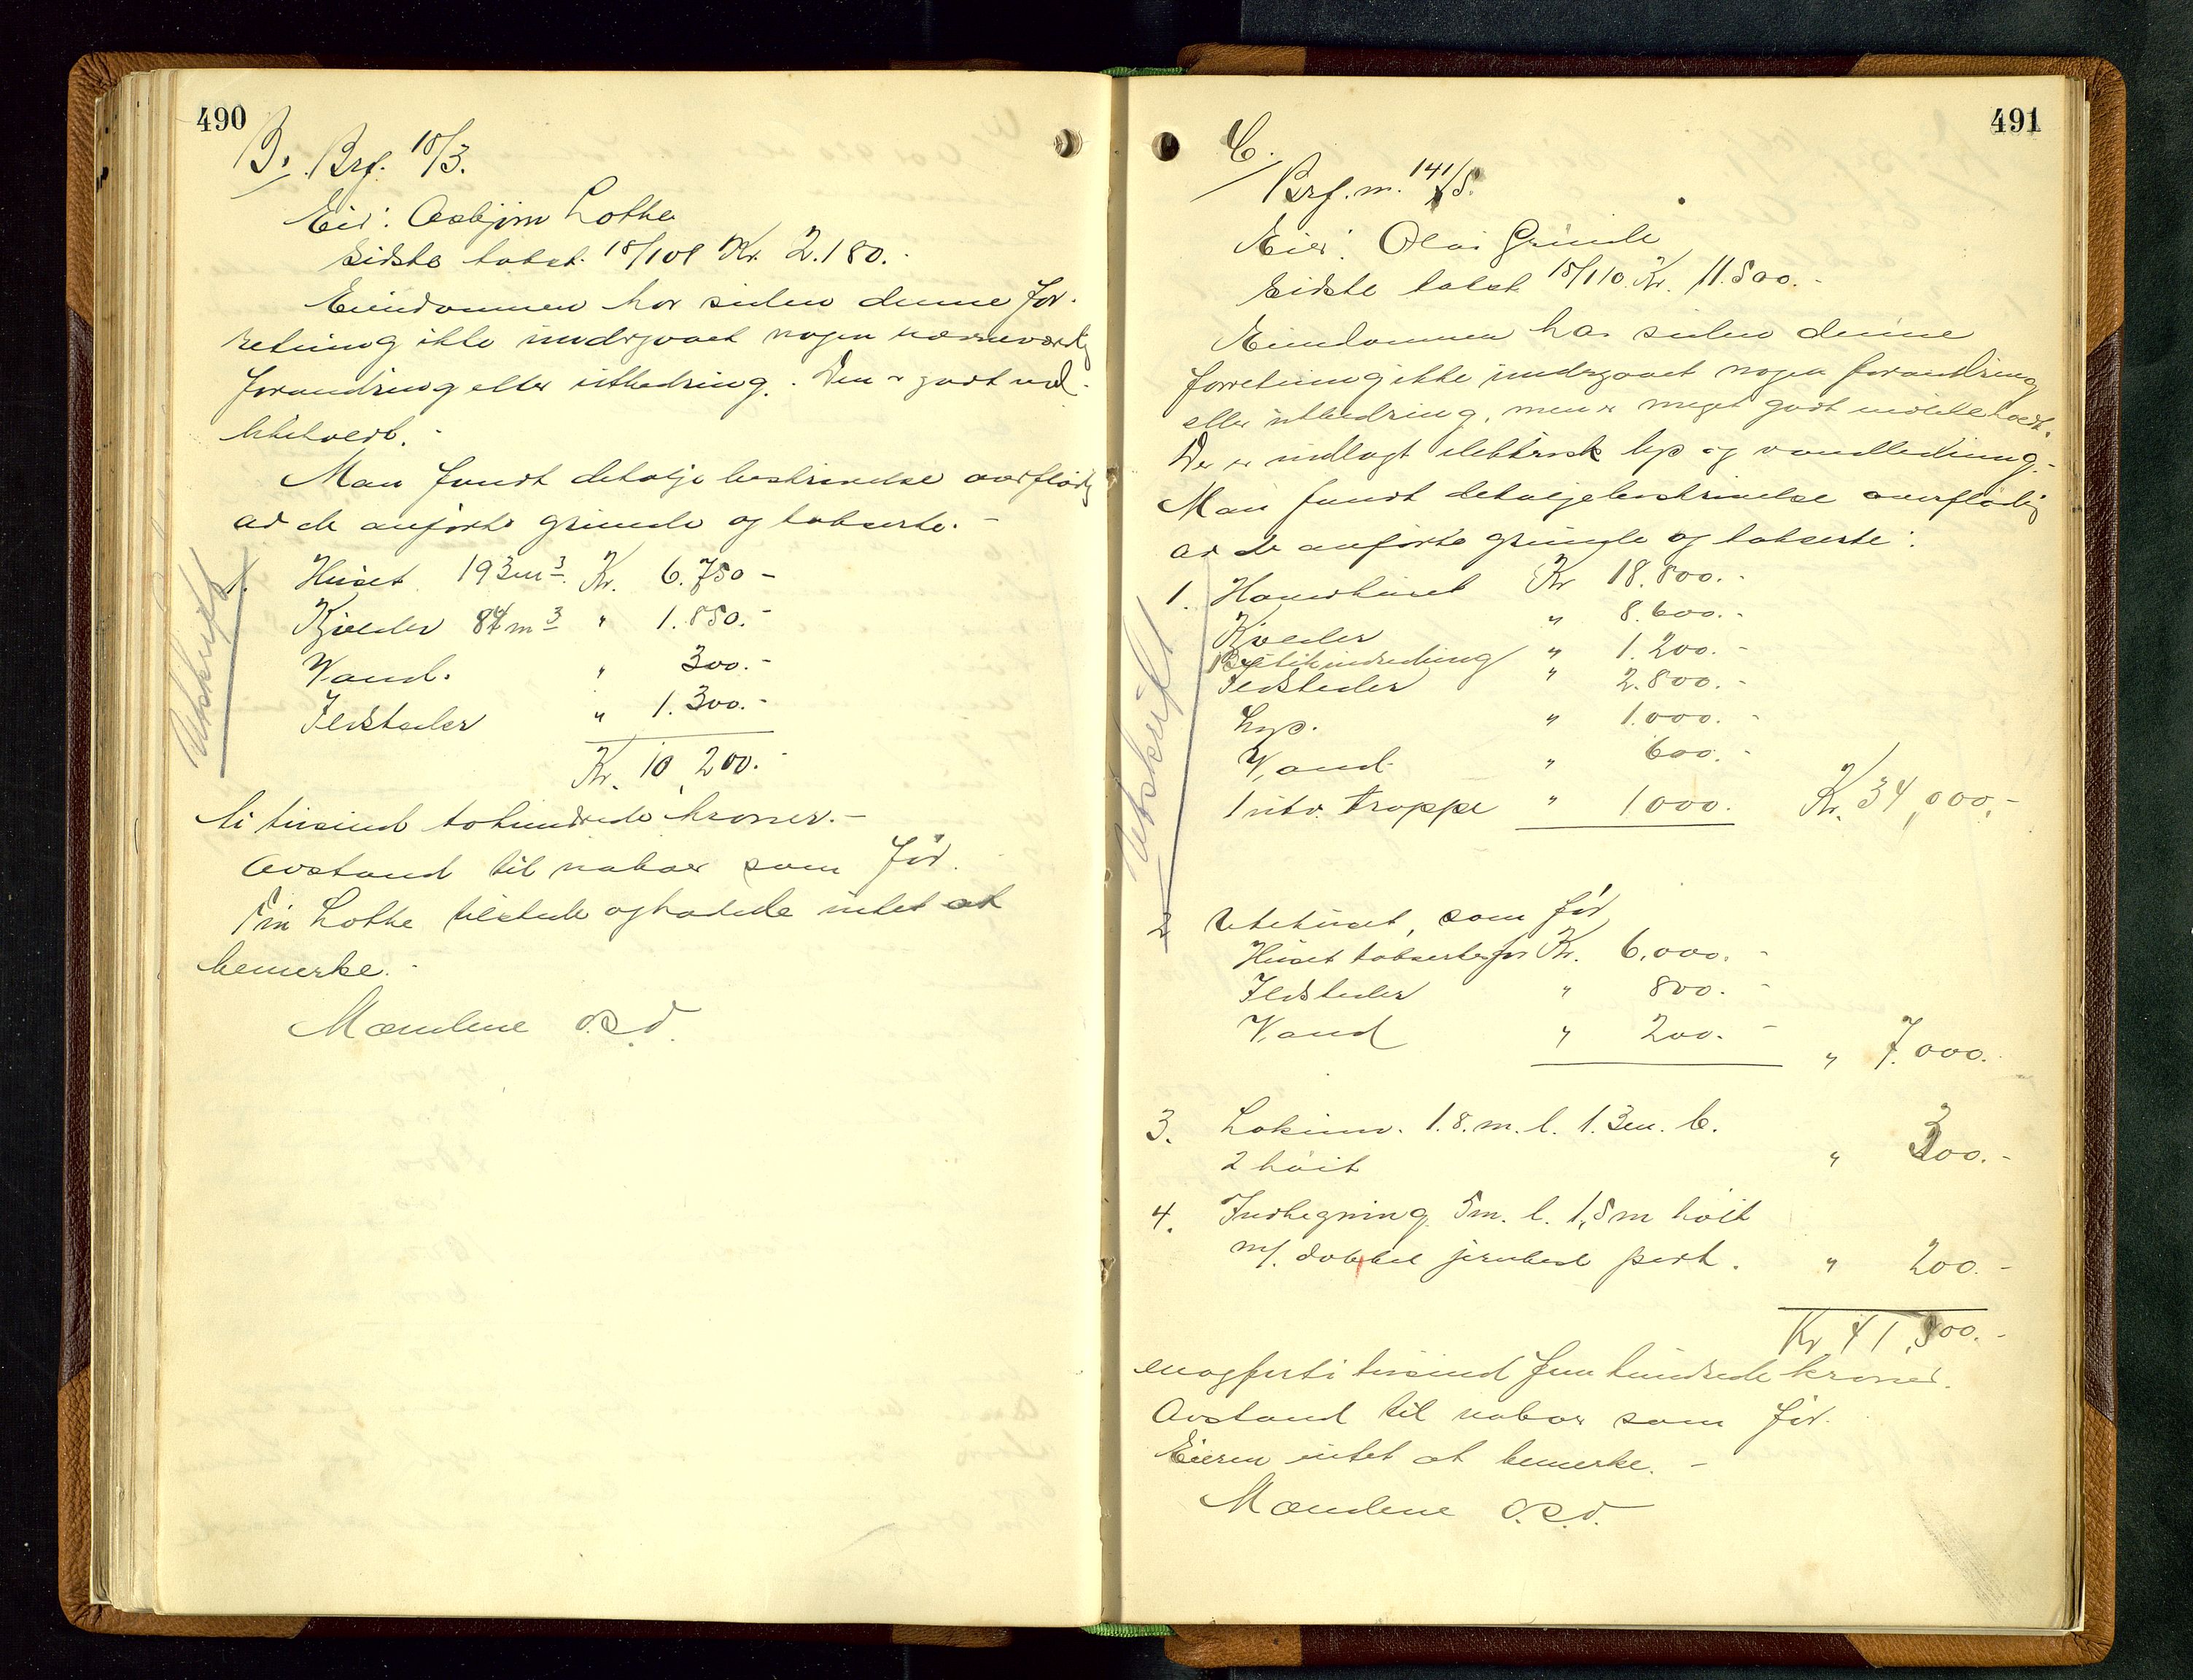 490
B. Brf. 18/3.
Eier: Asbjørn Lothe
Sidste takst. 18/1 01 Kr. 2.180.-
Eiendommen har siden denne for-
retning ikke undergaaet nogen nævneværdig
forandring eller utbedring. Den er godt ved-
likeholdt.-
Man fandt detalje beskrivelse overflødig
av de anførte grunde og takserte.-
Utskrift
1. Huset 193 m3. Kr. 6.750-
Kjælder 84 m3 " 1.850.-
Vand. " 300.-
Ildsteder " 1.300.-
Kr. 10,200.-
ti tusind tohundrede kroner.-
Avstand til naboer som før.
Lothe tilstede og hadde intet at
bemerke.-
Mændene o.s.v.
491
C.
Brf. m. 141/5.
Eier: Olai Grinde
Sidste takst 18/1 10. Kr. 11.500.-
Eiendommen har siden denne
forretning ikke undergaaet nogen forandring
eller utbedring, men er meget godt vedlikeholdt.
Der er indlagt elektrisk lys og vandledning.-
Man fandt detaljebeskrivelse overflødig
av de anførte grunde og takserte:
Utskrift
1. Hovedhuset Kr 18.800.-
Kjælder " 8.600.-
Butikindredning " 1.200.-
Ildsteder " 2.800.-
Lys. " 1.000.-
Vand " 600.-
1 utv. trappe " 1000. Kr. 34,000.-
2 Utehuset, som før
Huset takseres for Kr. 6.000.-
Ildsteder " 800.-
Vand " 200.- " 7.000.
3. Lokum. 1.8. m. l. 1.3 m. b.
2 høit " 300.-
4. Indhegning 5 m. l. 1,5 m høit
m/. dobbel jernbesl port. " 200.-
Kr 41,500.-
enogførti tusind fem hundrede kroner.
Avstand til naboer som før.
Eieren intet at bemerke.-
Mændene o.s.v.